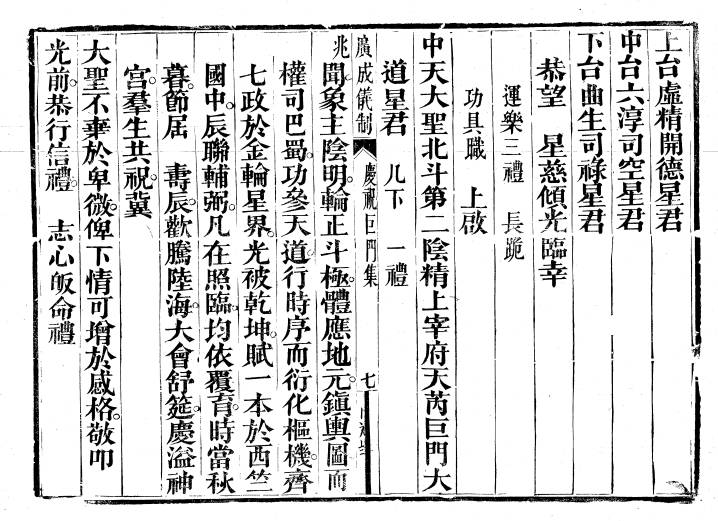 上台虛精開德星君
中台六淳司空星君
下台曲生司祿星君
恭望　星慈傾光臨幸
運樂三禮　長跪
功具職　上啟
中天大聖北斗第二陰精上宰府天芮巨門大
道星君　几下　一禮
廣成儀制　慶祝巨門集　七
兆聞象主陰明輪正斗極體應地元鎮輿圖而
權司巴蜀功參天道行時序而衍化樞機齊
七政於金輪星界光被乾坤賦一本於西竺
國中辰聯輔弼凡在照臨均依覆育時當秋
暮節屆　壽辰歡騰陸海大會舒筵慶溢神
宮羣生共祝冀
大聖不棄於卑微俾下情可增於感格敬叩
光前恭行信禮　志心皈命禮